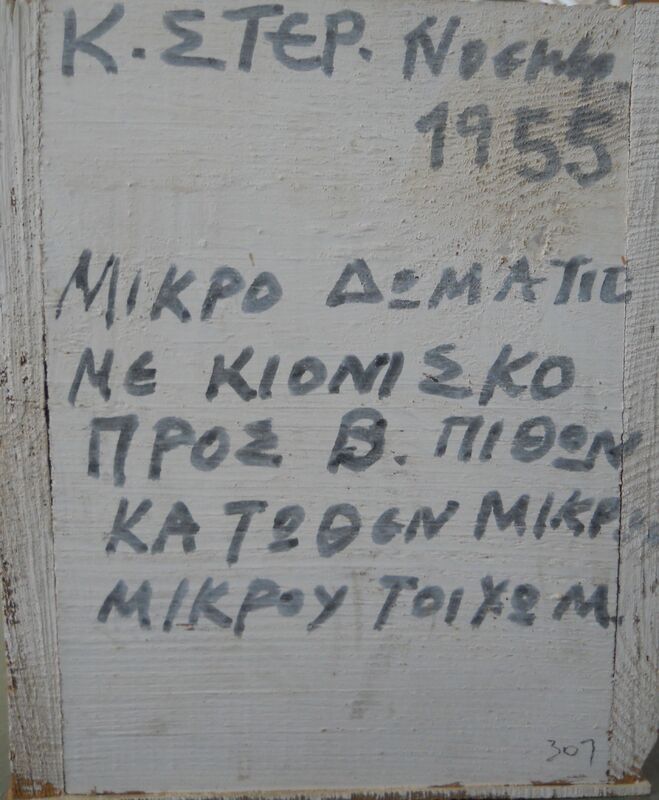 Κ. ΣΤΕΡ. Νοεμβρ
1955
ΜΙΚΡΟ ΔΩΜΑΤΙΟ
ΜΕ ΚΙΟΝΙΣΚΟ
ΠΡΟΣ Β. ΠΙΘΩΝ
ΚΑΤΩΘΕΝ ΜΙΚΡ
ΜΙΚΡΟΥ ΤΟΙΧΩΜ.
307